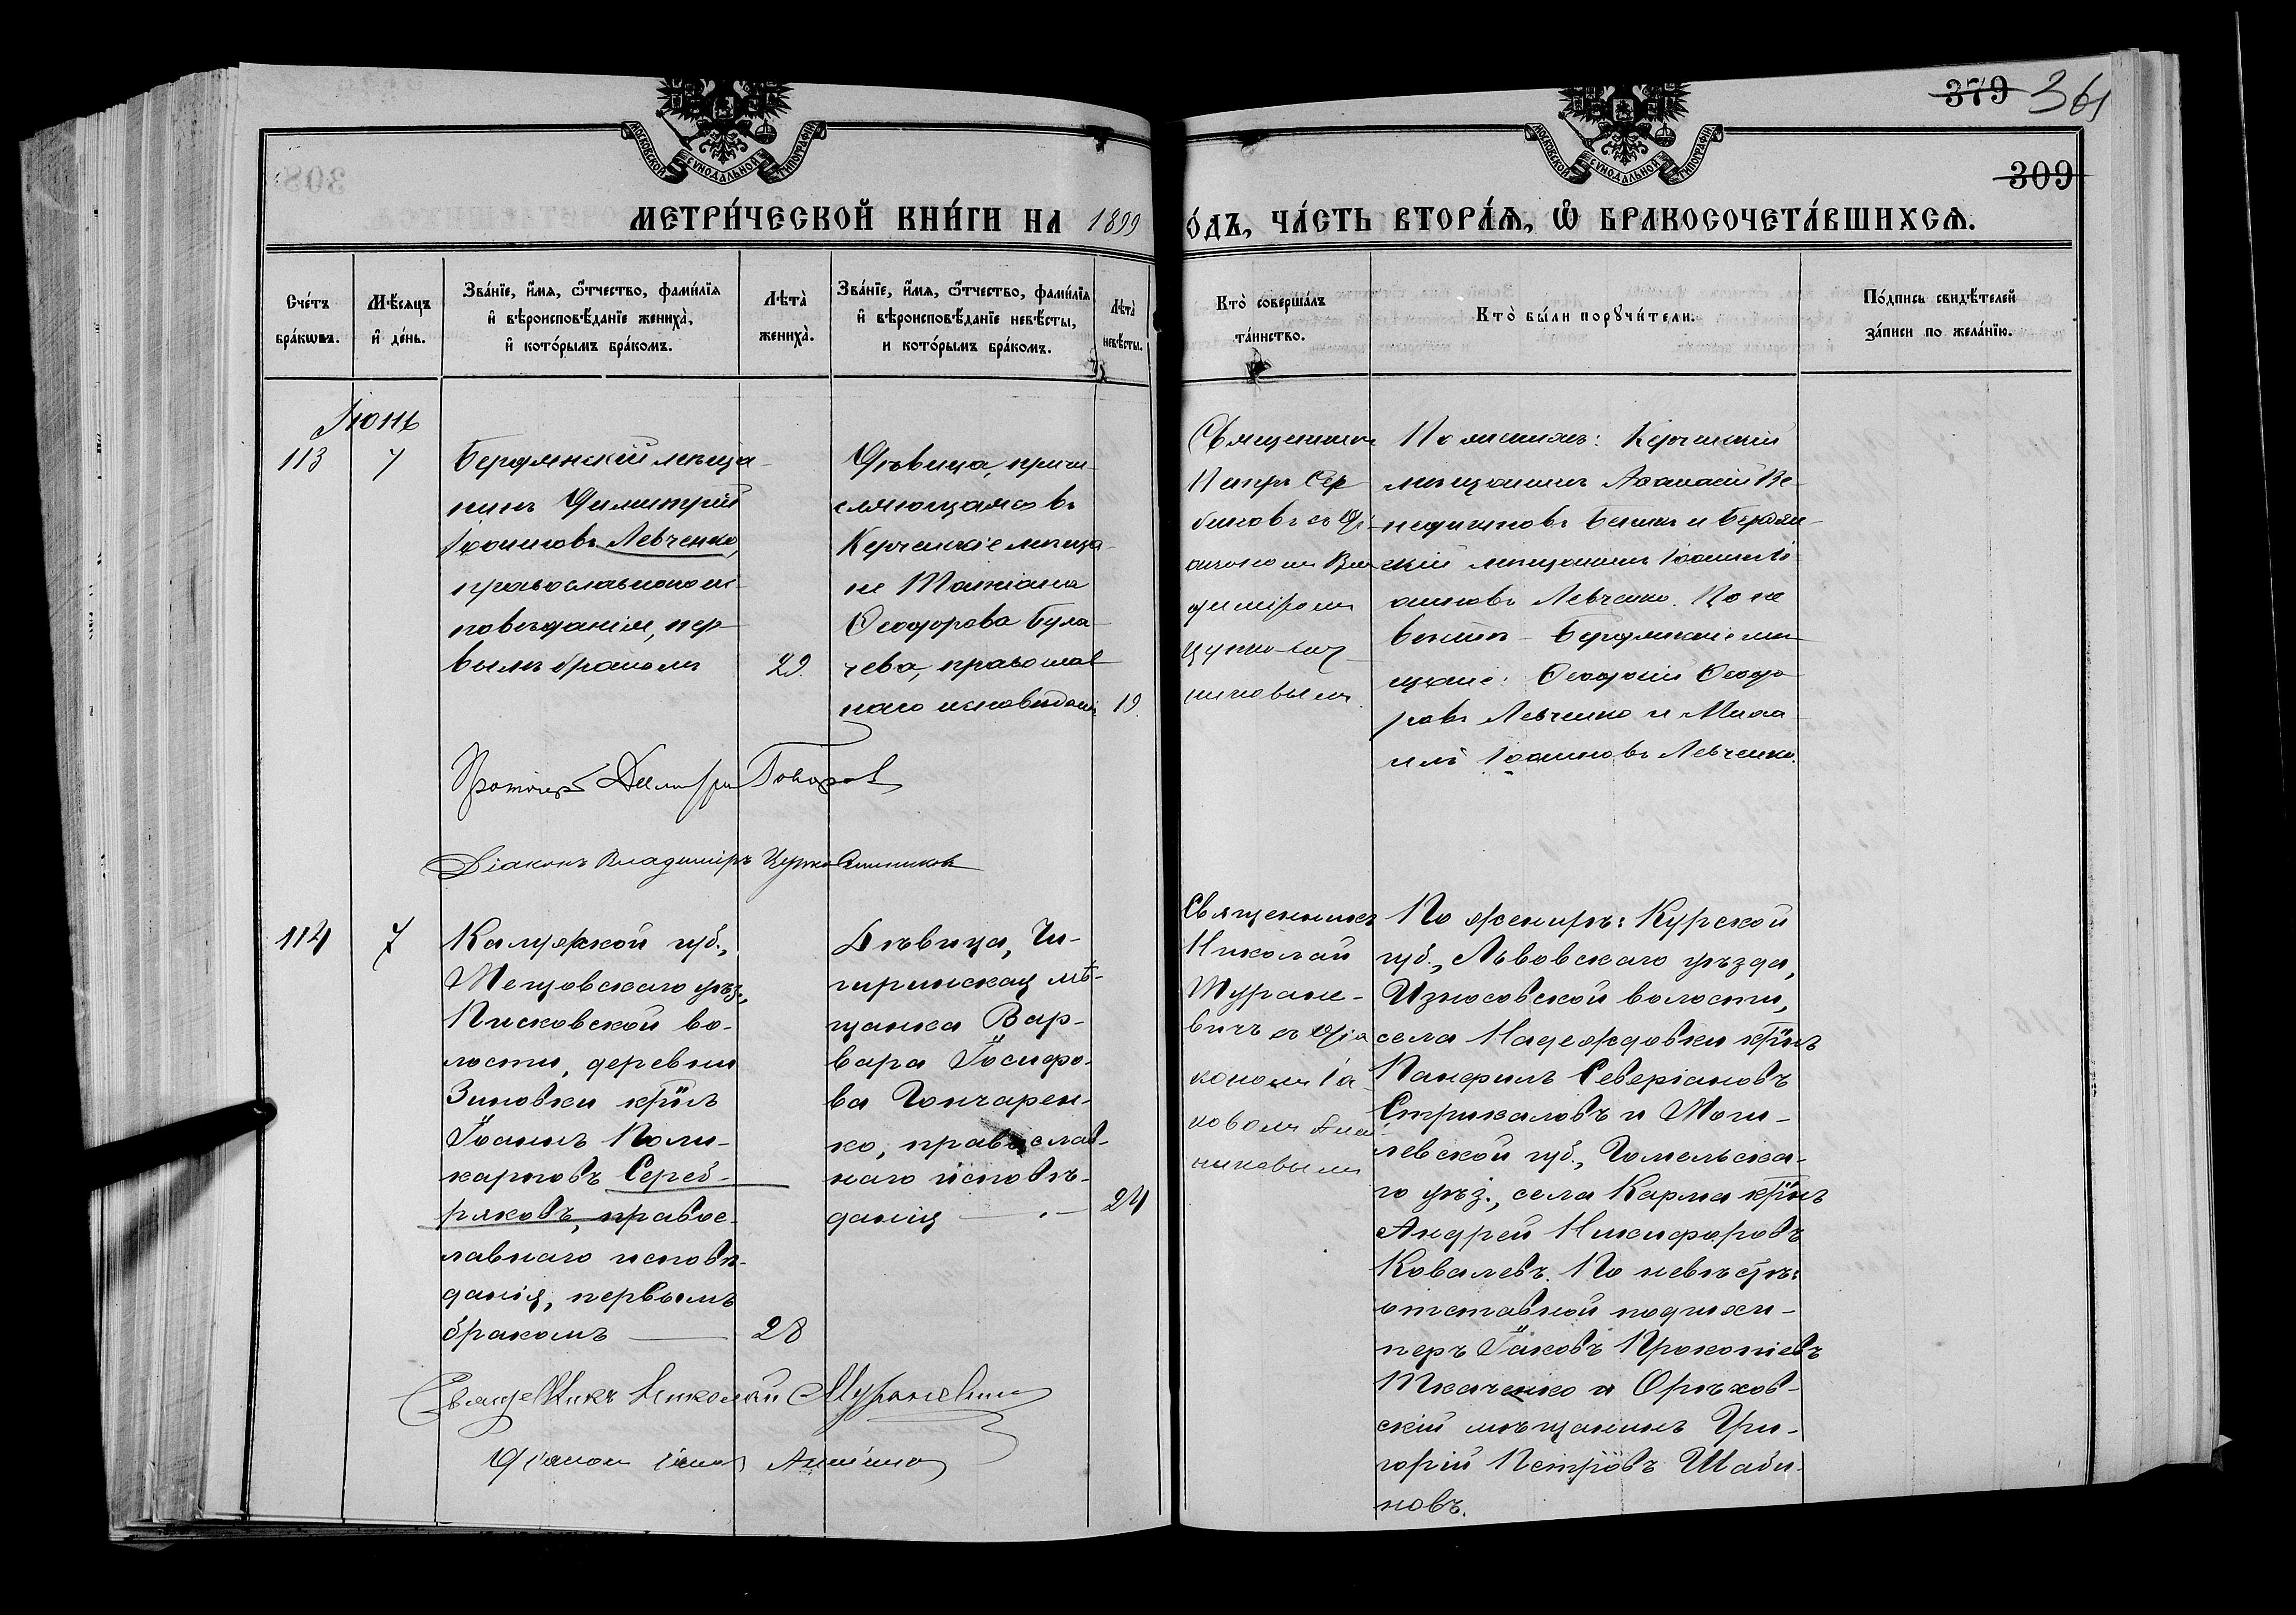 379 361
309
МОСКОВСКОЙ СѴНОДАЛЬНОЙ ТИПОГРАФІИ
МОСКОВСКОЙ СѴНОДАЛЬНОЙ ТИПОГРАФІИ
МЕТРИ́ЧЕСКОЙ КНИ́ГИ НА 1899
О́ДЪ, ЧА́СТЬ ВТОРА́Ѧ, Ѽ БРАКОСОЧЕТА́ВШИХСѦ.
Сче́тъ
бра́кѡвъ.
Мѣ́сяцъ
и҆ де́нь.
Зва́нїе, и҆́мѧ, ѻ҆́тчество, фами́лїѧ
и҆ вѣроисповѣ́данїе жениха̀,
и҆ кото́рымъ бра́комъ.
Лѣта̀
жениха̀.
Зва́нїе, и҆́мѧ, ѻ҆́тчество, фами́лїѧ
и҆ вѣроисповѣ́данїе невѣ́сты,
и кото́рымъ бра́комъ.
Лѣта̀
невѣ́сты.
Кто̀ соверша́лъ
та́инство.
Кто̀ бы́ли порꙋчи́тели.
По́дпись свидѣ́телей
за́писи по жела́нїю.
Іюнь
113
7
Бердянскій мѣща-
нинъ Димитрій
Іоанновъ Левченко,
православнаго ис-
повѣданія, пер-
вымъ бракомъ
29.
Дѣвица, причи-
сляющаяся въ
Керченскіе мѣща-
не Татіана
Ѳеодорова Була-
чева, православ-
наго исповѣдані
19.
Священникъ
Петръ Сер
биновъ съ Ді-
акономъ Вла
диміромъ
Цурко
никовымъ.
По женихѣ: Керченскій
мѣщанинъ Аѳанасій Ве-
и Бердян-
скій мѣщанинъ Іоаннъ Іо
анновъ Левченко. По не
вѣстѣ - Бердянскіе мѣ
щане: Ѳеодосій Ѳеодо
ровъ Левченко и Миха
илъ Іоанновъ Левченко.
Протоіер Димитрій
Діаконъ Владиміръ
114
7
Калужской губ.,
Мещовскаго уѣз.,
Писковской во-
лости, деревни
Зиновки кр̃нъ
Іоаннъ Поли-
карповъ Сереб-
ряковъ, правос-
лавнаго исповѣ-
данія, первымъ
бракомъ
28
Дѣвица, Чи-
гиринская мѣ-
щанка Вар-
вара Іосифо-
ва Гончарен-
ко, православ-
наго исповѣ-
данія
24
Священникъ
Николай
Муране-
вичъ съ Діа
кономъ Іа
ковомъ Ани
никовымъ
По женихѣ: Курской
губ., Львовскаго уѣзда,
Износовской волости,
села Надеждовки кр̃нъ
Памфилъ Северіановъ
Стрикаловъ и Моги-
левской губ., Гомельска-
го уѣз., села Карма кр̃нъ
Андрей Никифоровъ
Ковалевъ. По невѣстѣ:
отставной подшки-
перъ Іаковъ Прокопіевъ
Ткаченко и Орѣхов-
скій мѣщанинъ Гри-
горій Петровъ Шаби-
новъ.
Священникъ Николай Мураневич
Діакон Іаков